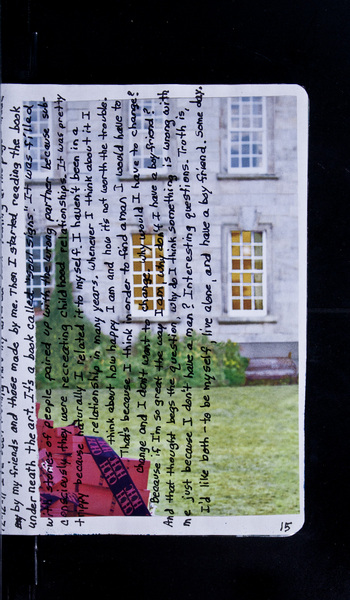 by my friends and those made by me. Then I started reading the book
underneath the art. It's a book called It was filled
with stories of people paired up with the wrong partner because sub-
consciously they were recreating childhood relationships. It was pretty
happy because naturally I related it to myself. I haven't been in a
relationship in many years, whenever I think about it I
think about how happy I am and how it's not worth the trouble.
That because I think in order to find a man I would have to
change and I don't want to change. Why would I have to change?
Because if I'm so great the way I am, why don't I have a boyfriend?
And that thought begs the question, why do I think something is wrong with
me just because I don't have a man? Interesting questions. Troth is,
I'd like both - to be myself, live alone, and have a boyfriend. Some day.
15